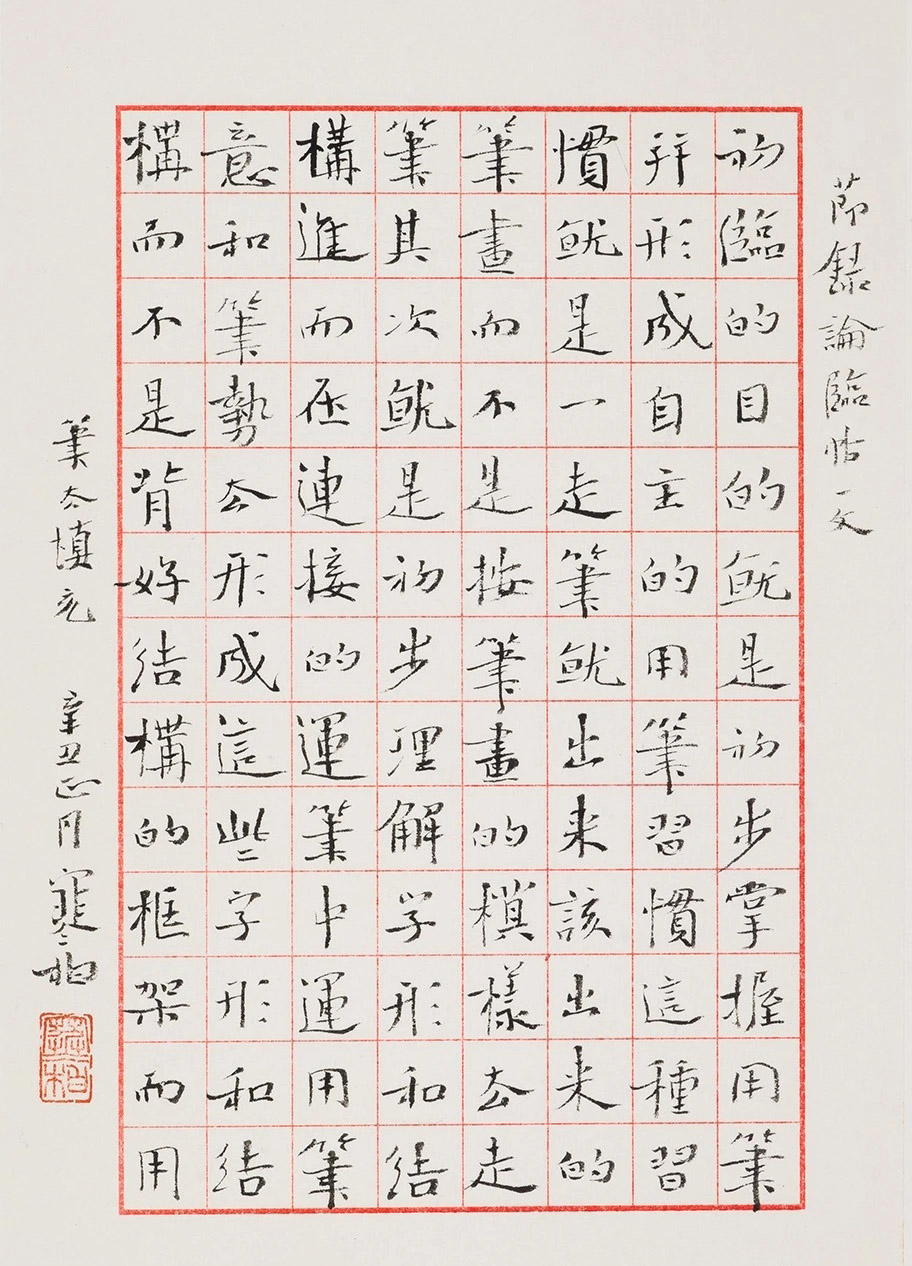 節錄論臨帖一文
初臨的目的就是初步掌握用筆
并形成自主的用筆習慣這種習
慣就是一走筆就出來該出來的
筆畫而不是按筆畫的模樣去走
筆其次就是初步理解字形和結
構進而在連接的運筆中運用筆
意和筆勢去形成這些字形和結
構而不是背好結構的框架而用
筆去填充 辛丑正月